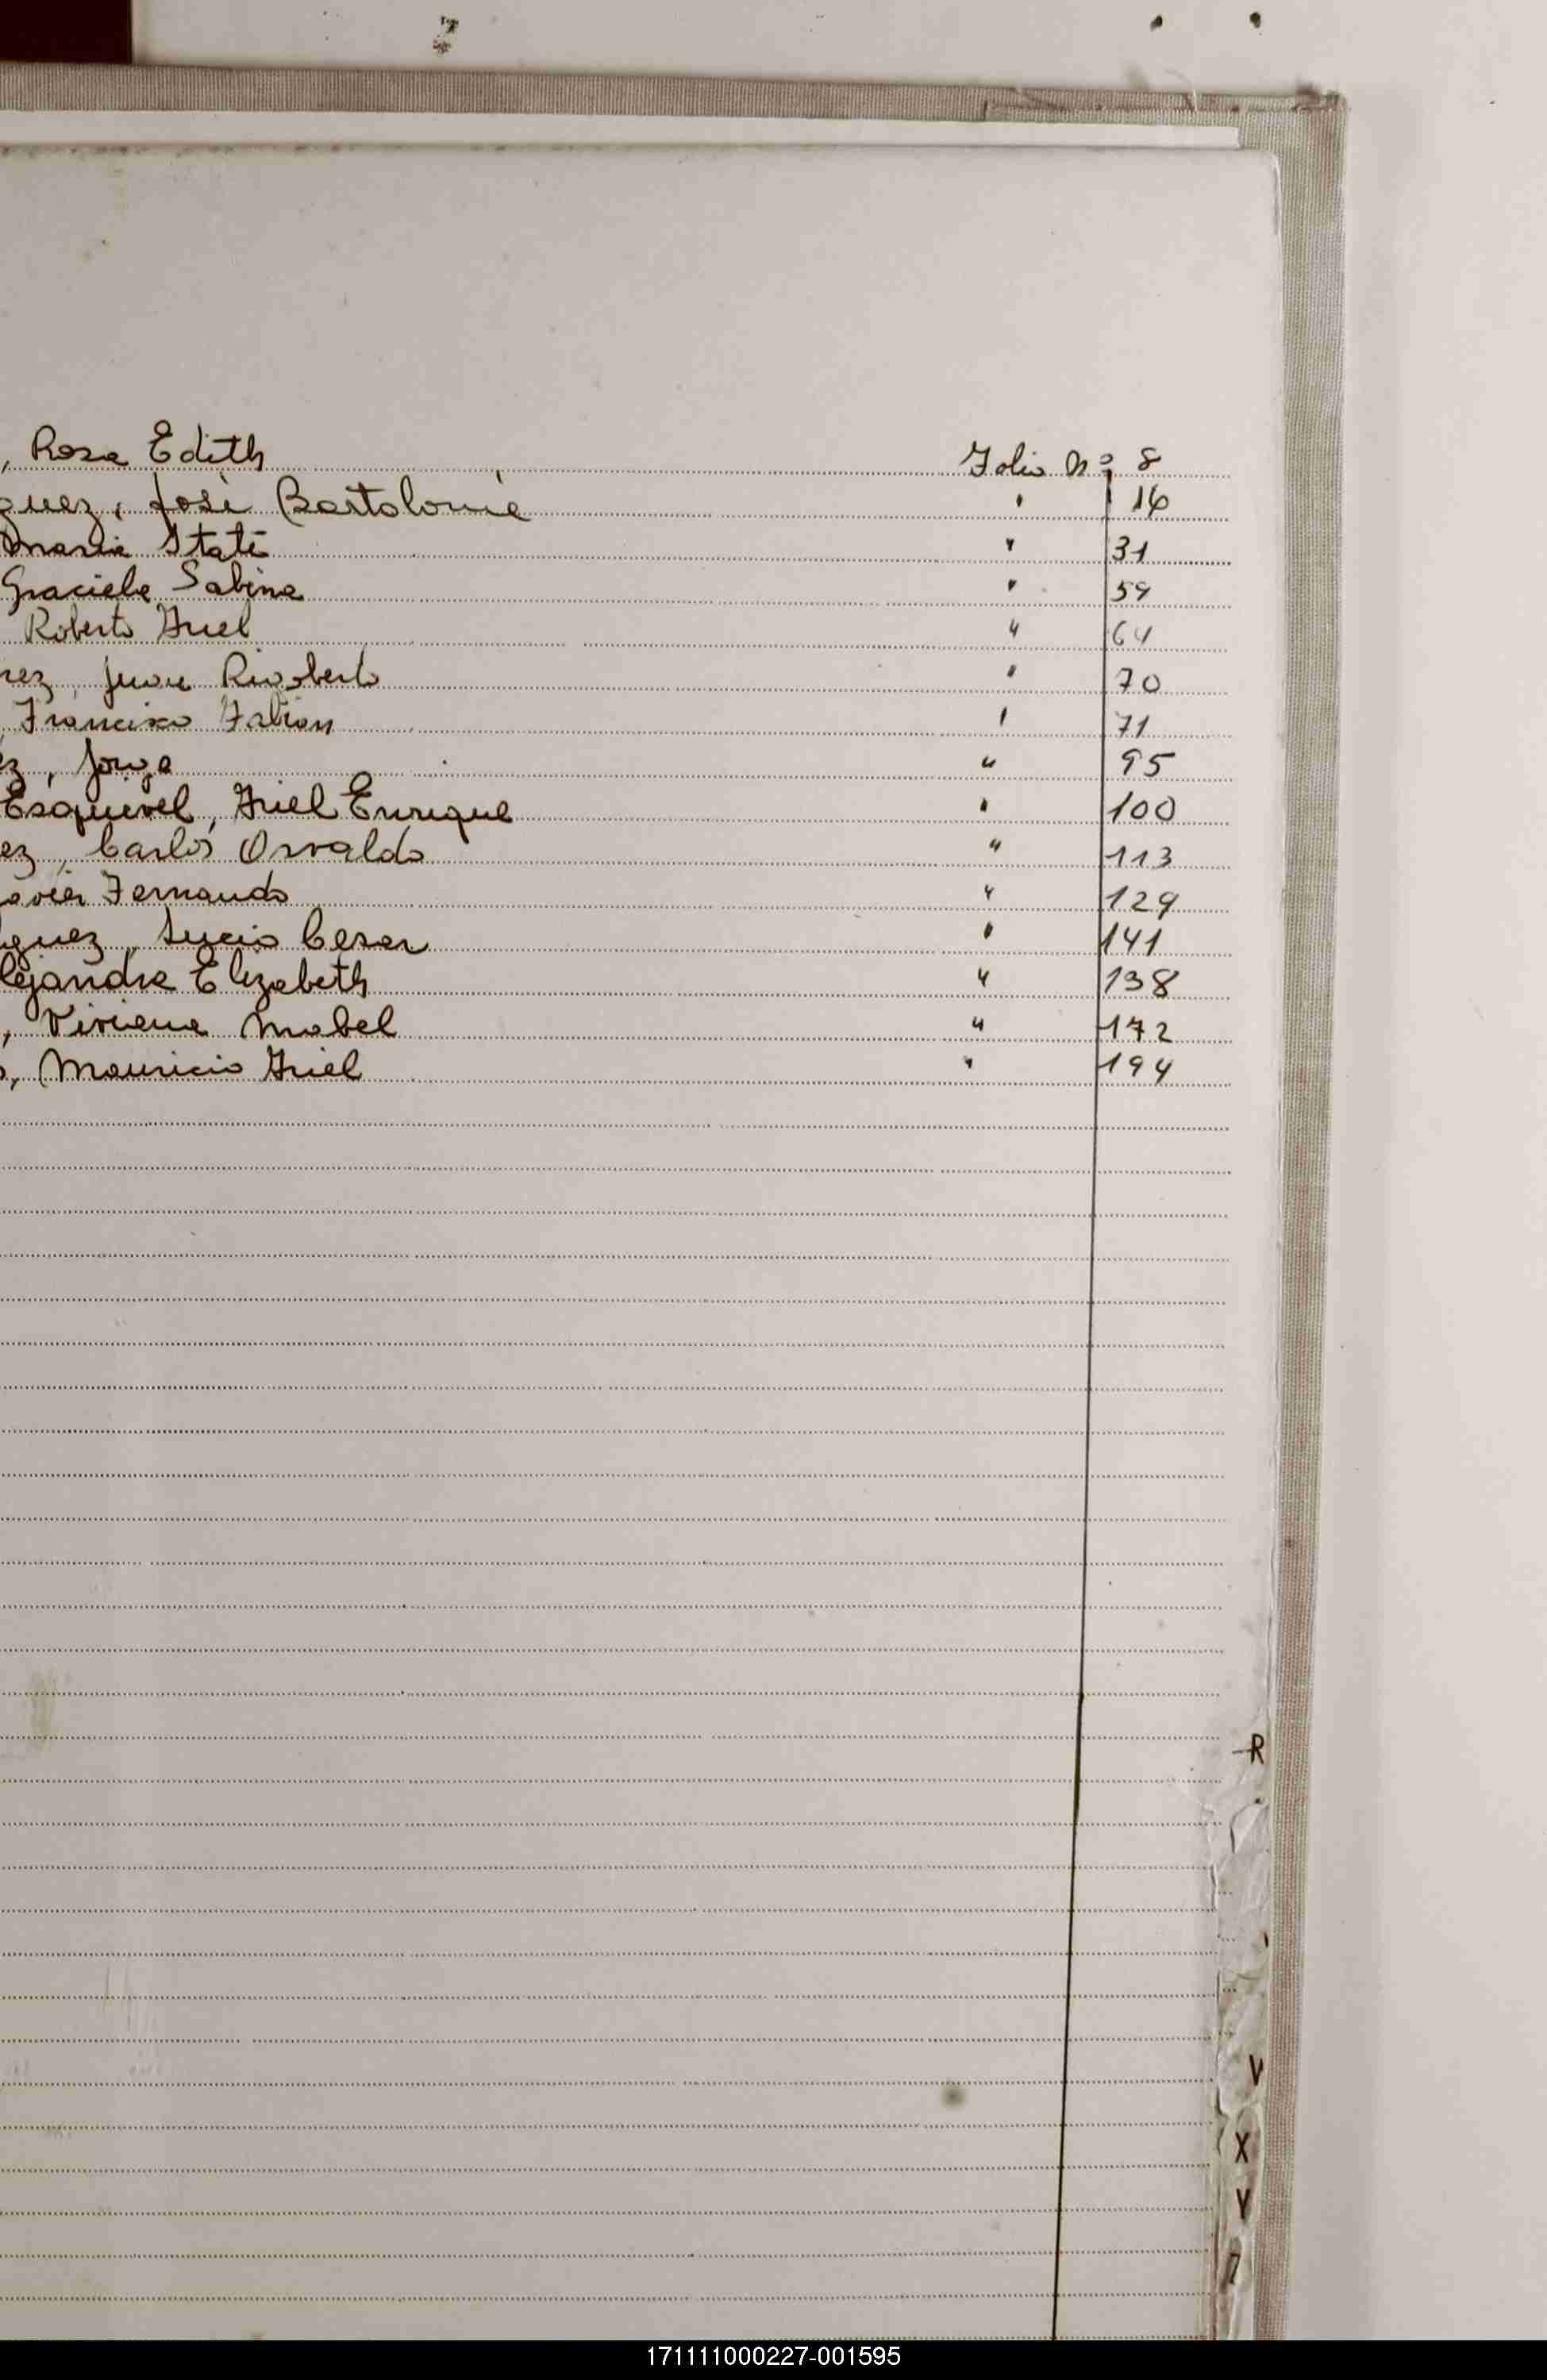 , Rosa Edith Folio Nº 8
guez, José Bartolomé " 16
Maria Itatí " 31
Graciela Sabina " 59
Roberto Ariel " 64
rez, Juan Rigoberto " 70
Francisco Fabian " 71
ez, Jorge " 95
Esquivel, Ariel Enrique " 100
ez, Carlos Osvaldo " 113
avier Fernando " 129
iguez, Lucio Cesar " 141
lejandra Elizabeth " 138
, Viviana Mabel " 172
o, Mauricio Ariel " 194
R
V
X
Y
Z
171111000227-001595